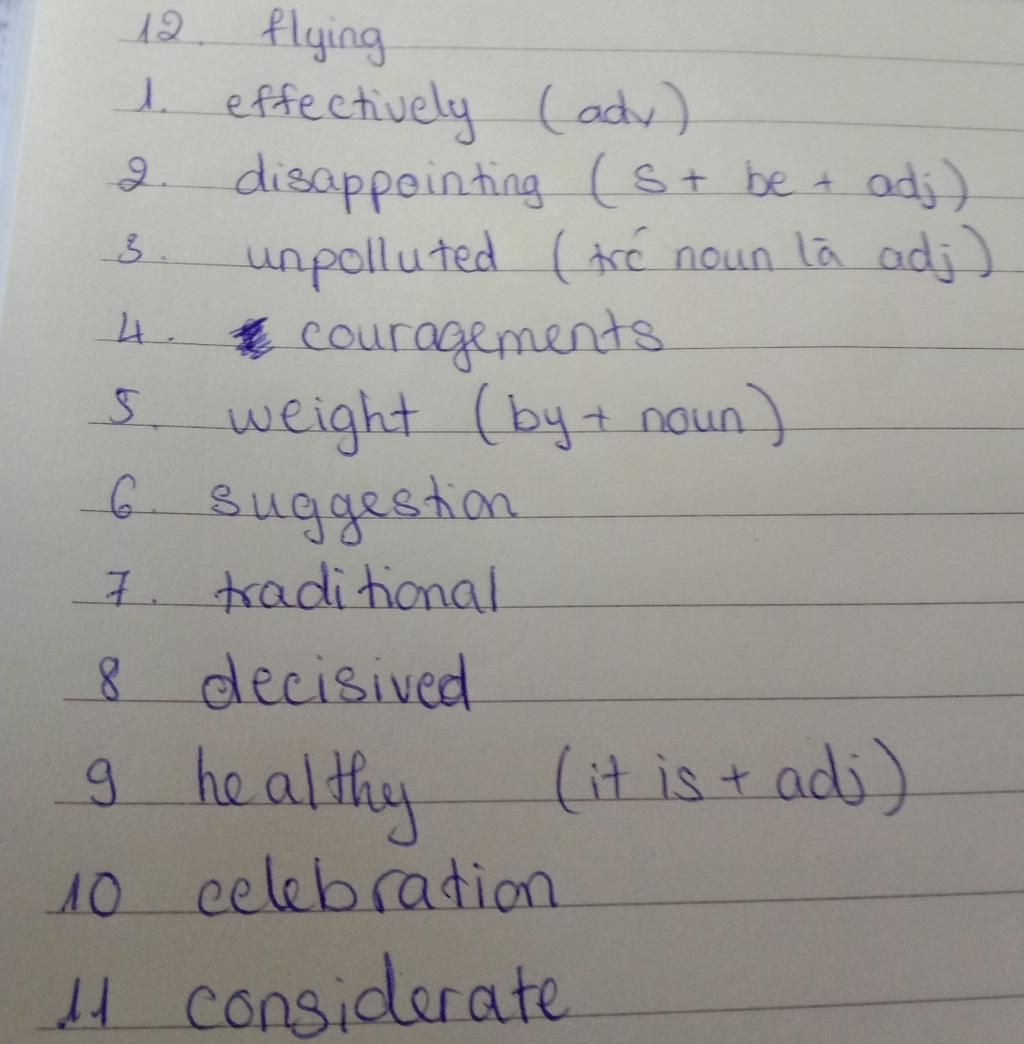 12. flying
1. effectively (adv)
2. disappointing (S + be + adj)
3. unpolluted (trc noun là adj)
4. couragements
5. weight (by + noun)
6. suggestion
7. traditional
8 decisived
9 healthy (it is + adj)
10 celebration
11 considerate